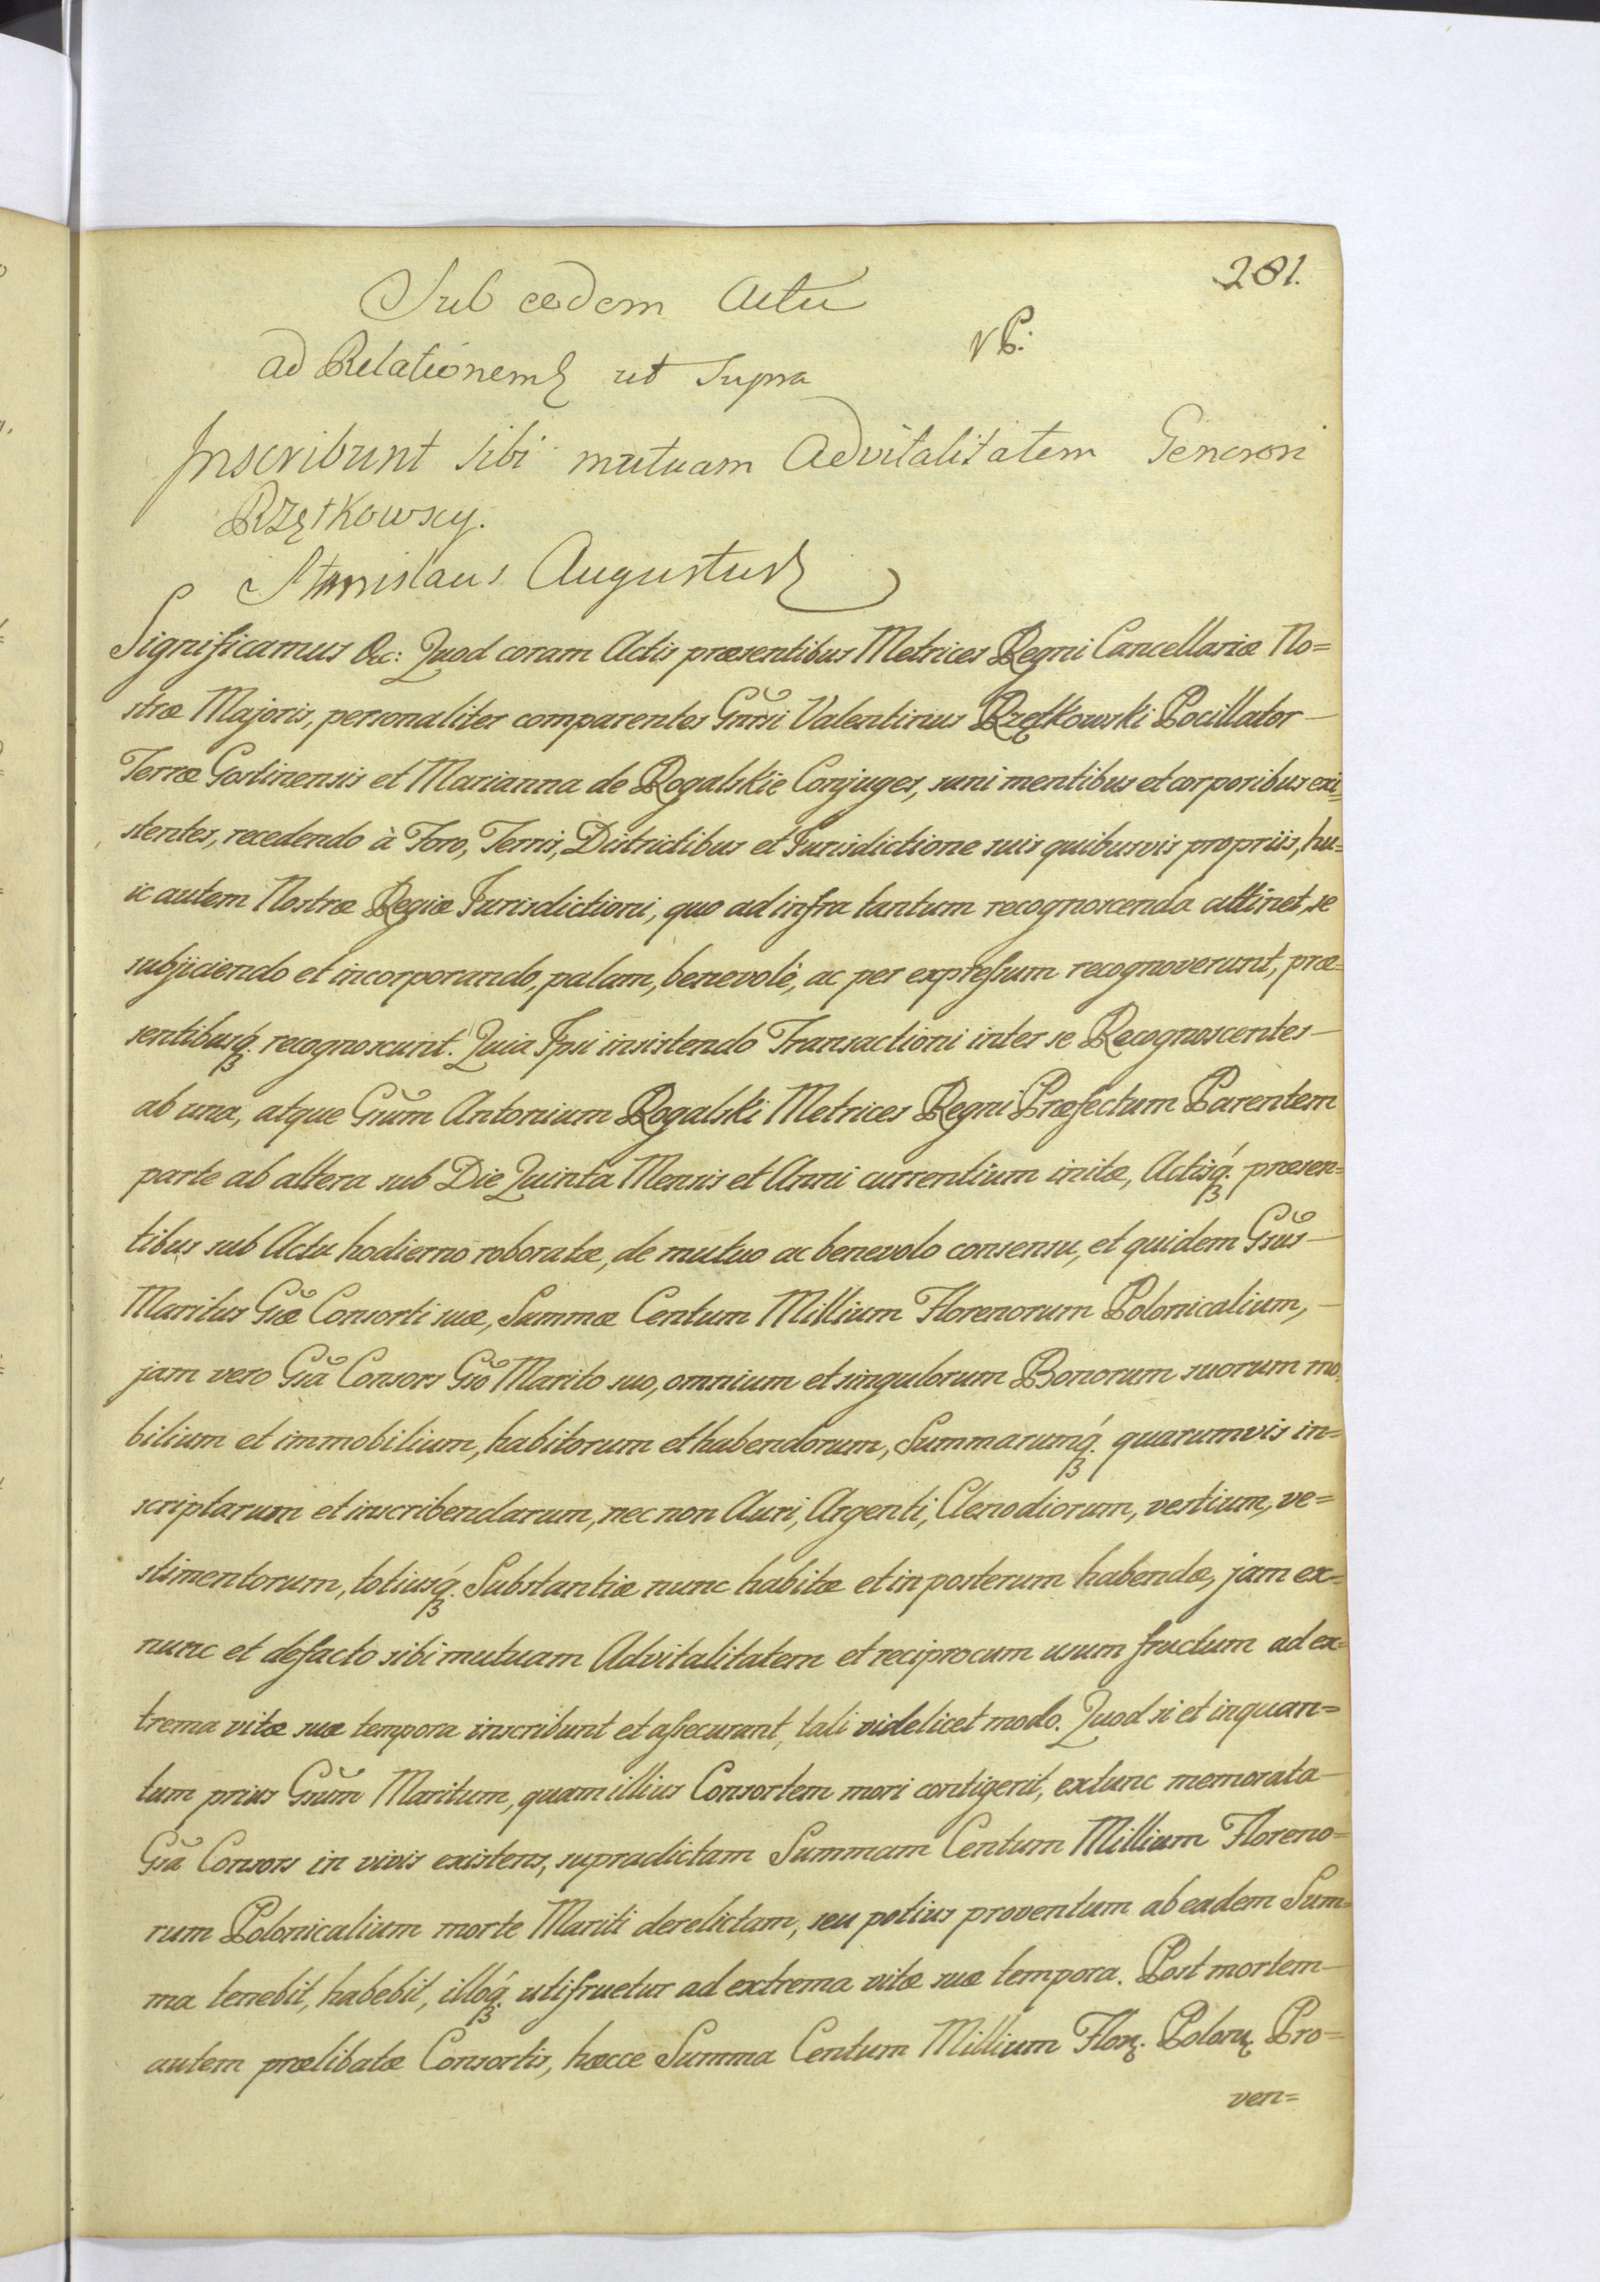 281.
Sub eodem Actu
ad Relationem ut supra
Inscribunt sibi mutuam Advitalitatem Generosi
Rzętkowscy.
Stanislaus Augustus
Significamus &c: Quod coram Actis præsentibus Metrices Regni Cancellariæ No=
stræ Majoris, personaliter comparentes Gnrsi Valentinus Rzętkowski Pocillator
Terræ Gostinensis et Marianna de Rogalskie Conjuges, sani mentibus et corporibus exi=
stentes, recedendo à Foro, Terris, Districtibus et Jurisdictione suis quibusvis propriis, hu=
ic autem Nostræ Regiæ Jurisdictioni, quo ad infra tantum recognoscenda attinet, se
subjiciendo et incorporando, palam, benevolè, ac per expressum recognoverunt, præ=
sentibusq́. recognoscunt. Quia Ipsi insistendo Transactioni inter se Recognoscentes
ab una, atque Gsum Antonium Rogalski Metrices Regni Præfectum Parentem
parte ab altera sub Die Quinta Mensis et Anni currentium initæ, Actisq́. præsen=
tibus sub Actu hodierno roboratæ, de mutuo ac benevolo consensu, et quidem Gsus
Maritus Gsæ Consorti suæ, Summæ Centum Millium Florenorum Polonicalium,
jam vero Gsa Consors Gso Marito suo, omnium et singulorum Bonorum suorum mo=
bilium et immobilium, habitorum et habendorum, Summarumq́. quarumvis in=
scriptarum et inscribendarum, nec non Auri, Argenti, Clenodiorum, vestium, ve=
stimentorum, totiusq́. Substantiæ nunc habitæ et in posterum habendæ, jam ex=
nunc et defacto sibi mutuam Advitalitatem et reciprocum usum fructum ad ex=
trema vitæ suæ tempora inscribunt et assecurant, tali videlicet modo. Quod si et inquan=
tum prius Gsum Maritum, quam illius Consortem mori contigerit, extunc memorata
Gsa Consors in vivis existens, supradictam Summam Centum Millium Floreno=
rum Polonicalium morte Mariti derelictam, seu potius proventum ab eadem Sum=
ma tenebit, habebit, illoq́. utifruetur ad extrema vitæ suæ tempora. Post mortem
autem prælibatæ Consortis, hæcce Summa Centum Millium Flor. Polon. Pro=
ven=